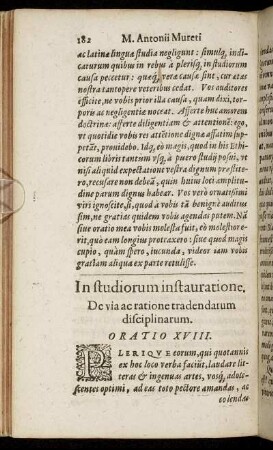 182 M. Antonii Mureti
ac latinæ linguæ studia negligunt: simulq́; indi-
caturum quibus in rebus à plerisq́; in studiorum
causa peccetur: quæq́; veræ causæ sint, cur ætas
nostra tantopere veteribus cedat. Vos auditores
efficite, ne vobis prior illa causa, quam dixi, tor-
poris ac negligentiæ noceat. Afferte huc amorem
doctrinæ: afferte diligentiam & attentionẽ: ego,
vt quotidie vobis rei attẽtione dignæ assatim sup-
petãt, prouidebo. Idq́; eò magis, quod in his Ethi-
corum libris tantum vsq́; à puero studij posui, vt
nisi aliquid expectatione vestra dignum præstite-
ro, recusare non debeã, quin huius loci amplitu-
dine parum dignus habear. Vos verò ornatissimi
viri ignoscite, si, quod à tã benignè auditus
sim, ne gratias quidem vobis agendas putem. Nã
sine oratio mea vobis molesta fuit, eò molestiore-
rit, quò eam longius protraxero: siue quod magis
cupio, quàm spero, iucunda, videor iam vobis
gratiam aliqua ex parte retulisse.
In studiorum instauratione,
De via ac ratione tradendarum
disciplinarum.
ORATIO XVIII.
PLERIQVE eorum, qui quotannis
ex hoc loco verba faciũt, laudare lit-
teras & ingenuas artes, vosq́; adole-
scentes optimi, ad eas toto pectore amandas, ac
colendas